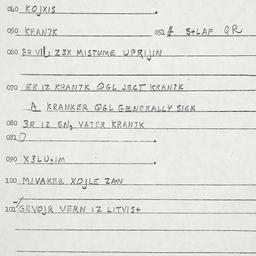 040 KOJXIS
050 KRAN7K 051 # S+LAF QR
060 ER VIL Z3X MISTUME UPRIJIN
070 ER IZ KRAN7K QGL JECT KRAN7K
A KRANKER QGL GENERALLY SICK
080 3R IZ EN, VATER KRAN7K
081
090 X3LU,IM
100 MIVAKER XOJLE ZAN
101 GEVOJR VERN IZ LITVIS+